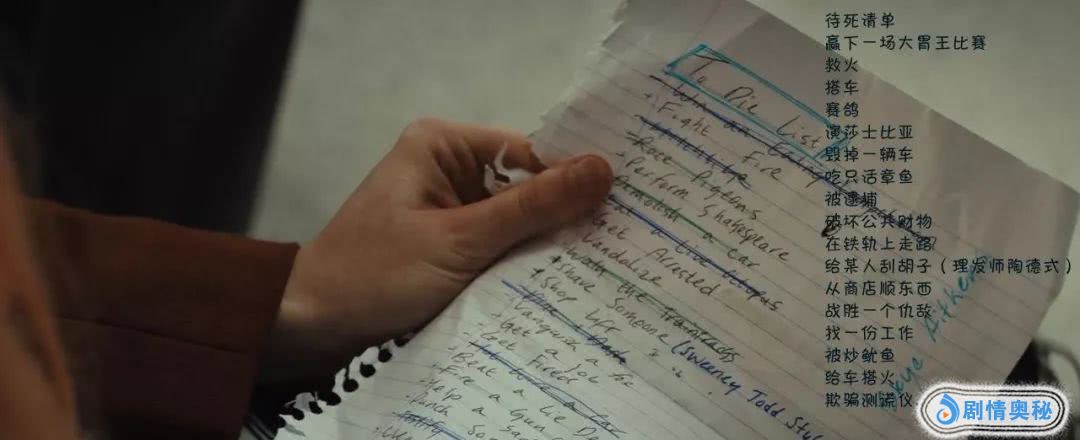 To Die List
Win an Eating
+ Fight Fire
Hitch hike
- Race Pigeons
- Perform Shakespeare
Demolish a car
Eat a Live Octopus
Get Arrested
Vandalize
Walk the Traintracks
+ Shave Someone (Sweeney Todd Style
+ Shop Lift
+ Vanquish a foe
- Get a Job
- Get Fired
Beat a Lie De
Fire a Gun
Skye Aitken
待死清单
赢下一场大胃王比赛
救火
搭车
赛鸽
演莎士比亚
毁掉一辆车
吃只活章鱼
被逮捕
破坏公共财物
在铁轨上走路
给某人刮胡子（理发师陶德式）
从商店顺东西
战胜一个仇敌
找一份工作
被炒鱿鱼
给车搭火
欺骗测谎仪
剧情奥秘